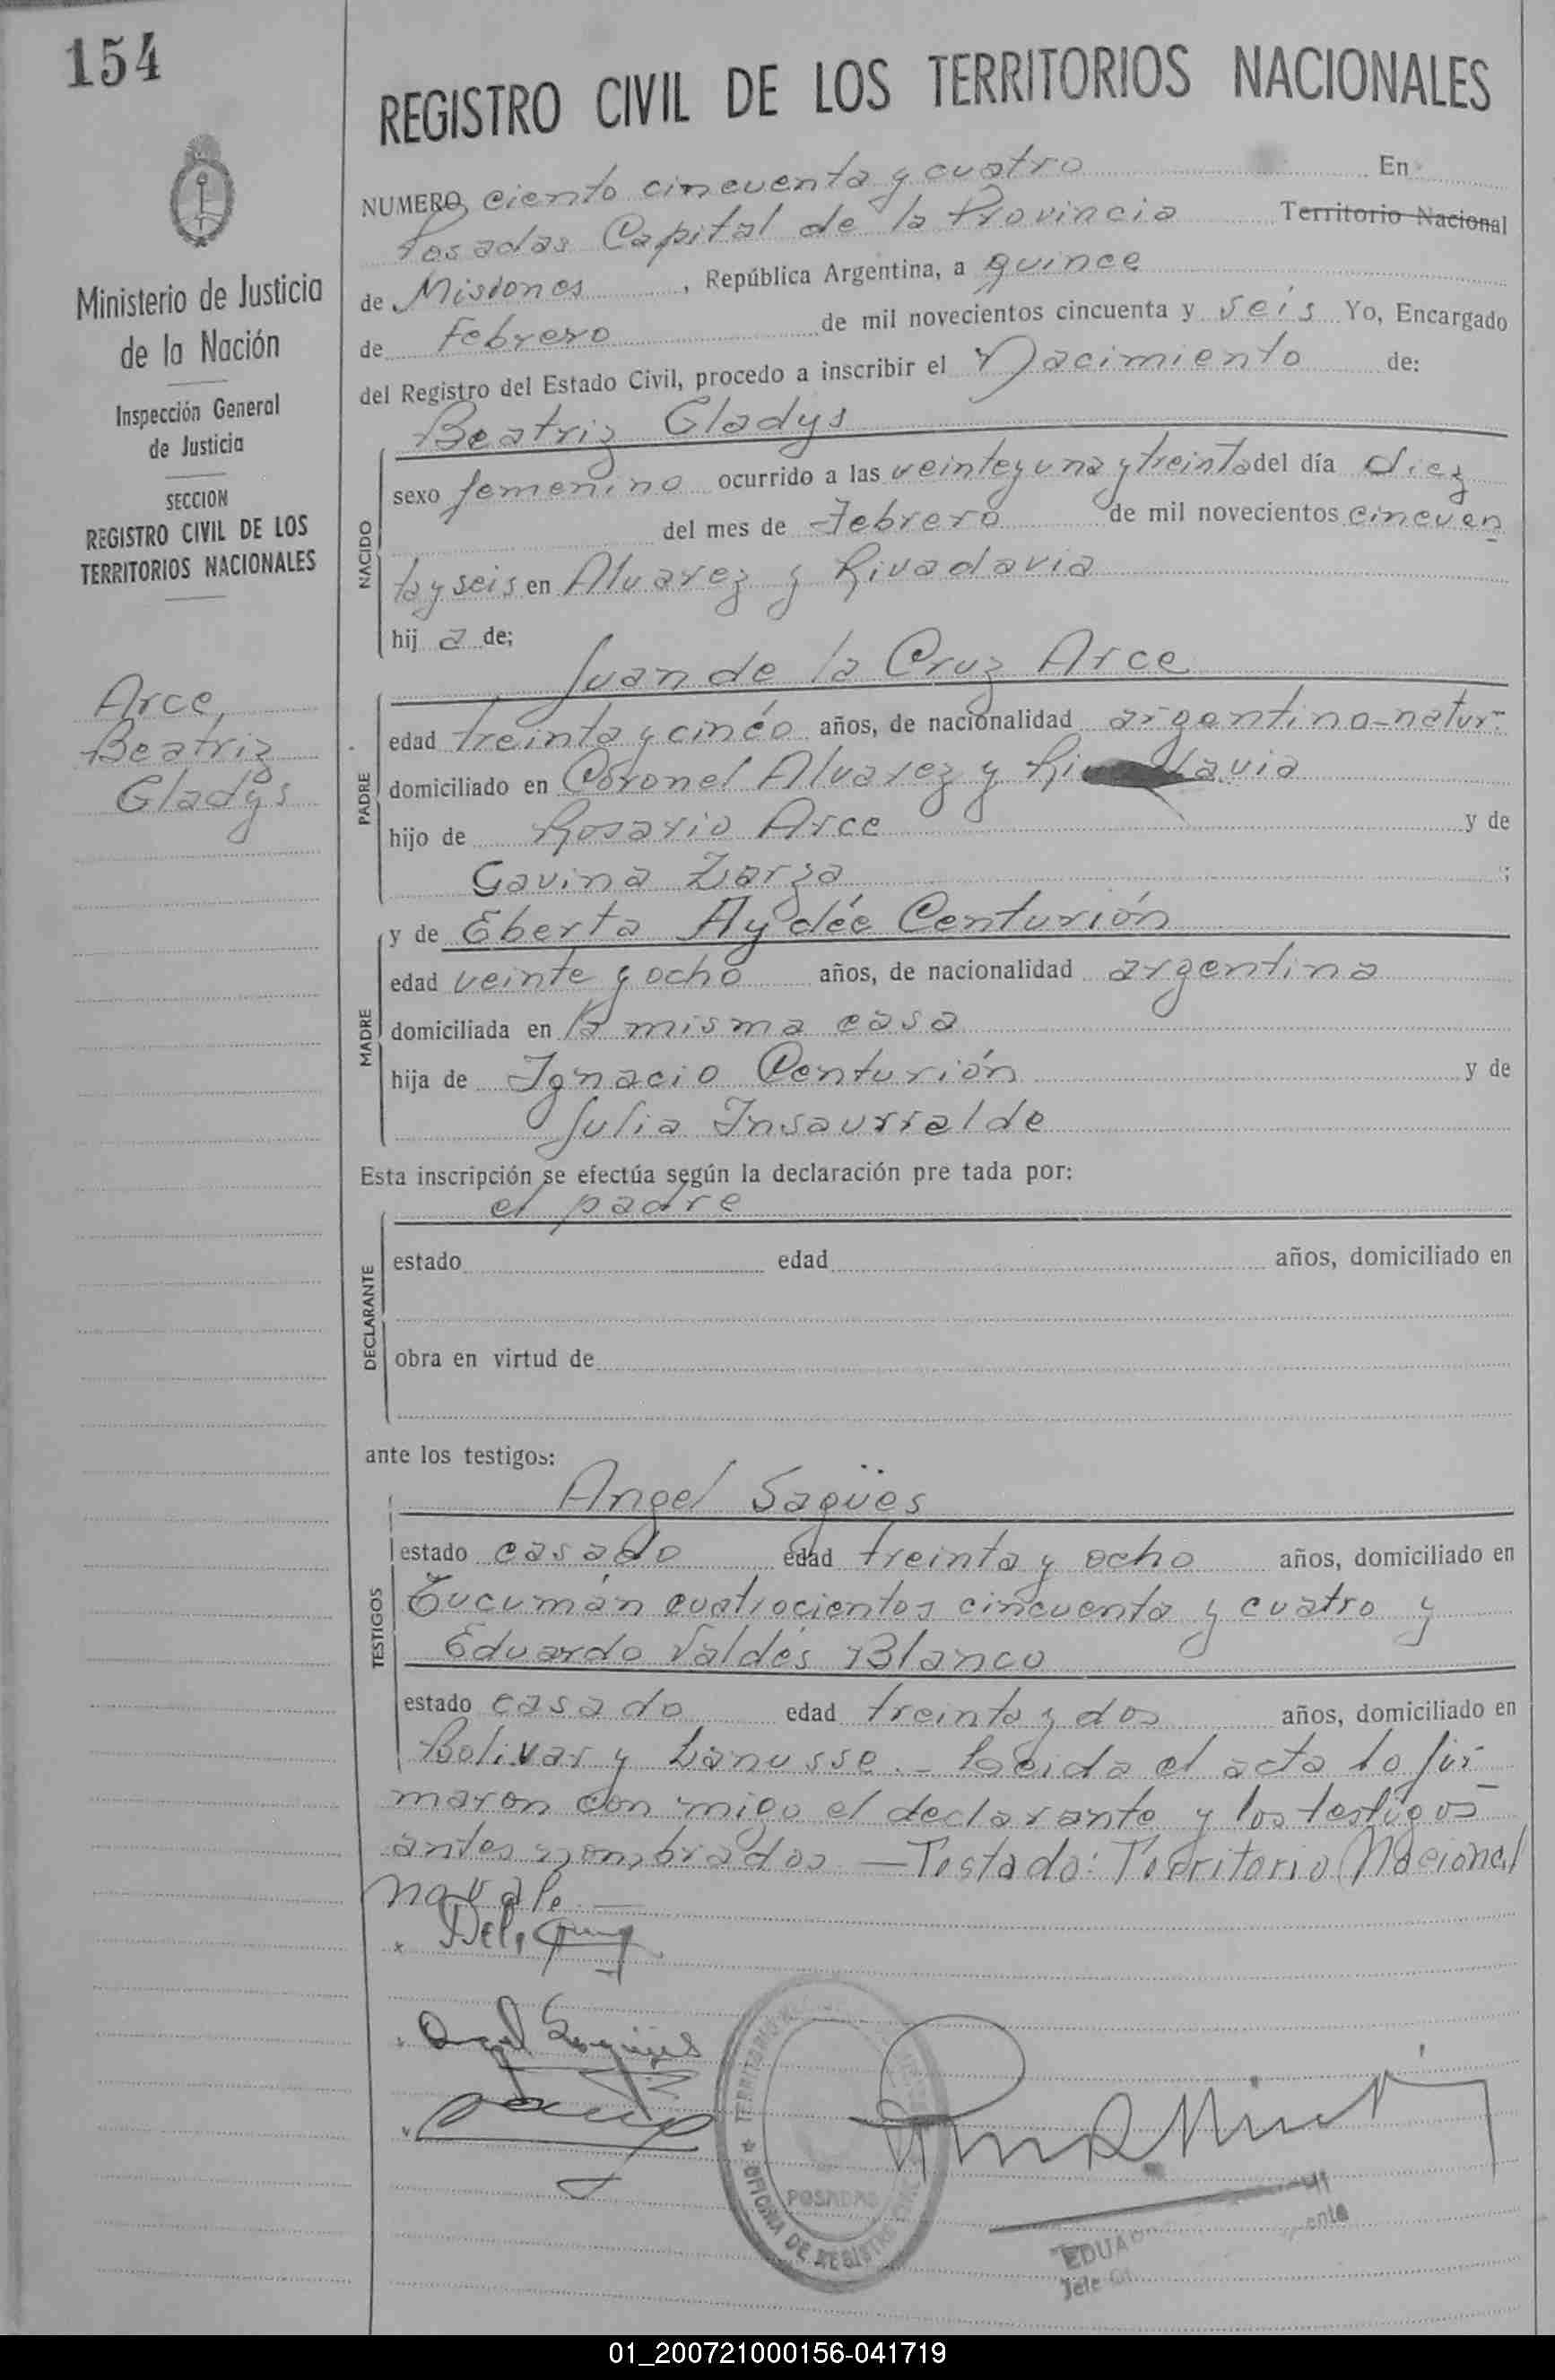 154
Ministerio de Justicia
de la Nación
Inspección General
de Justicia
SECCION
REGISTRO CIVIL DE LOS
TERRITORIOS NACIONALES
Arce,
Beatriz
Gladys
REGISTRO CIVIL DE LOS TERRITORIOS NACIONALES
NUMERO ciento cincuenta y cuatro En
Posadas Capital de la Provincia Territorio Nacional
de Misiones, República Argentina, a quince
de Febrero de mil novecientos cincuenta y seis Yo, Encargado
del Registro del Estado Civil, procedo a inscribir el Nacimiento de:
Beatriz Gladys
NACIDO
sexo femenino ocurrido a las veinte y una y treinta del día diez
del mes de Febrero de mil novecientos cincuen
ta y seis en Alvarez y Rivadavia
hij a de;
Juan de la Cruz Arce
PADRE
edad treinta y cinco años, de nacionalidad argentino-natur-
domiciliado en Coronel Alvarez y Rivadavia
hijo de Rosario Arce y de
Gavina Zarza ;
MADRE
y de Eberta Aydée Centurión
edad veinte y ocho años, de nacionalidad argentina
domiciliada en la misma casa
hija de Ignacio Centurión y de
Julia Insaurralde
Esta inscripción se efectúa según la declaración pre tada por:
el padre
DECLARANTE
estado edad años, domiciliado en
obra en virtud de
ante los testigos:
Angel Sagües
TESTIGOS
estado casado edad treinta y ocho años, domiciliado en
Tucumán cuatrocientos cincuenta y cuatro y
Eduardo Valdés Blanco
estado casado edad treinta y dos años, domiciliado en
Bolivar y Lanusse.- Leida el acta lo fir-
maron con migo el declarante y los testigos
antes nombrados - Testado: Territorio Nacional
no vale.-
Angel Sagües
TERRITORIO
★ OFICINA DE REGISTRO
POSADAS
EDUA
Jefe
01_200721000156-041719